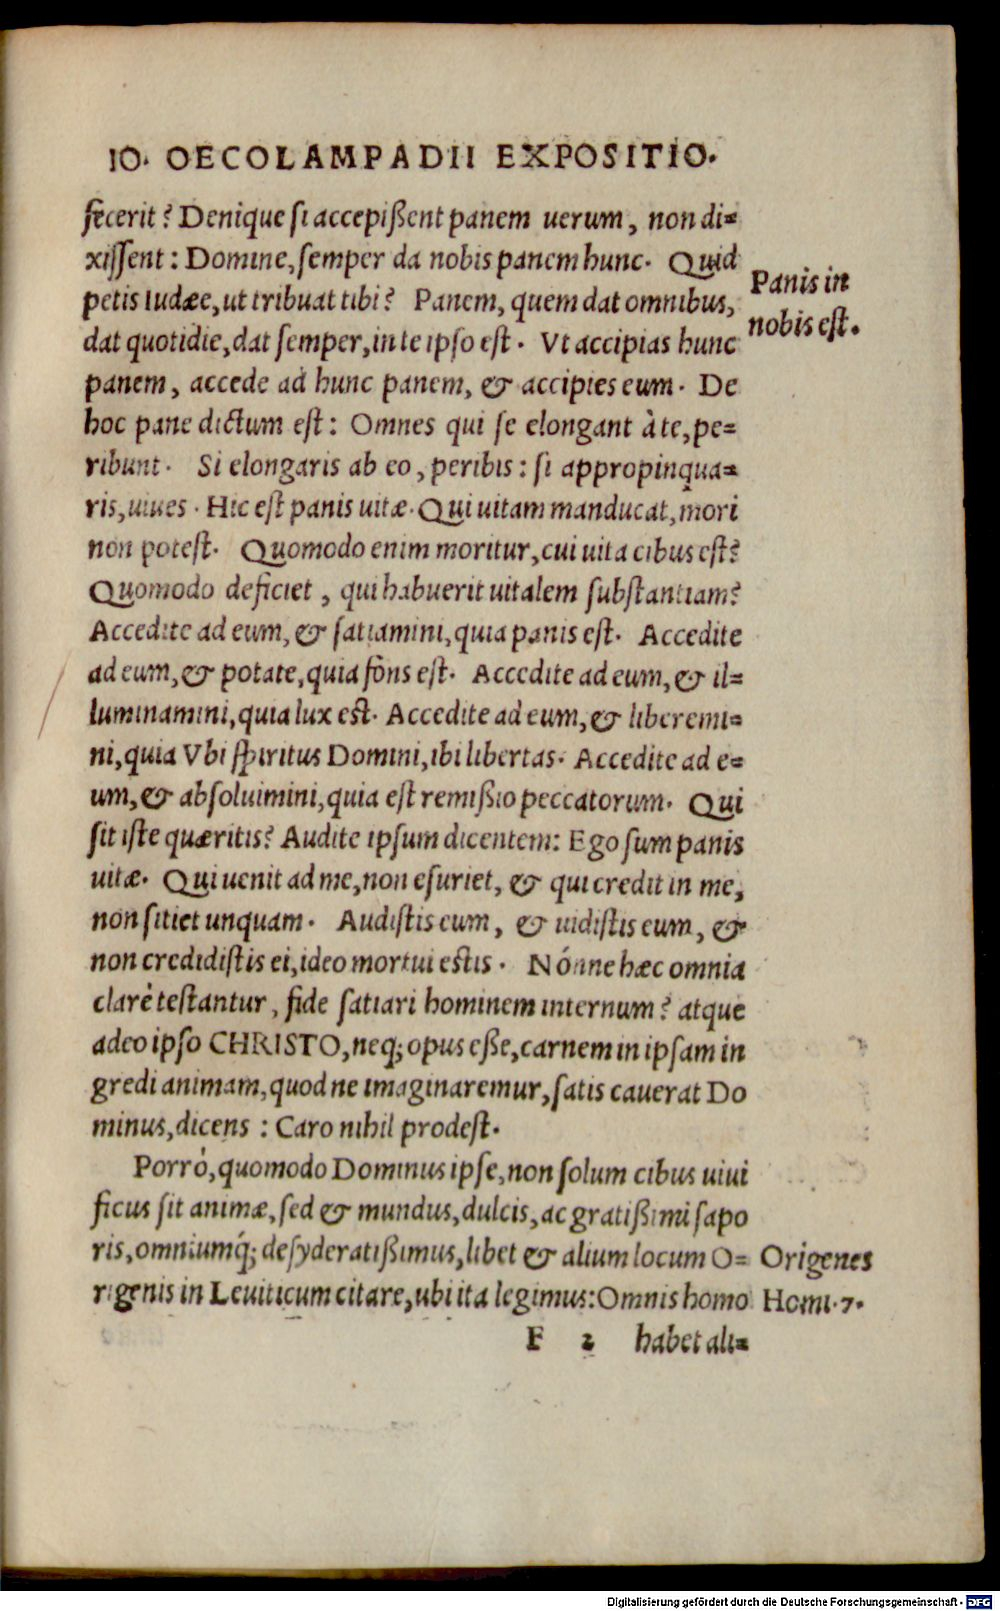 IO. OECOLAMPADII EXPOSITIO.
fecerit? Denique si accepißent panem uerum, non di=
xissent: Domine, semper da nobis panem hunc. Quid
petis Iudæe, ut tribuat tibi? Panem, quem dat omnibus,
Panis in
nobis est.
dat quotidie, dat semper, in te ipso est. Vt accipias hunc
panem, accede ad hunc panem, & accipies eum. De
hoc pane dictum est: Omnes qui se elongant à te, pe=
ribunt. Si elongaris ab eo, peribis: si appropinqua=
ris, uiues. Hic est panis uitæ. Qui uitam manducat, mori
non potest. Quomodo enim moritur, cui uita cibus est?
Quomodo deficiet, qui habuerit uitalem substantiam?
Accedite ad eum, & satiamini, quia panis est. Accedite
ad eum, & potate, quia fons est. Accedite ad eum, & il=
luminamini, quia lux est. Accedite ad eum, & liberemi=
ni, quia Vbi spiritus Domini, ibi libertas. Accedite ad e=
um, & absoluimini, quia est remißio peccatorum. Qui
sit iste quæritis? Audite ipsum dicentem: Ego sum panis
uitæ. Qui uenit ad me, non esuriet, & qui credit in me,
non sitiet unquam. Audistis eum, & uidistis eum, &
non credidistis ei, ideo mortui estis. Nónne hæc omnia
clarè testantur, fide satiari hominem internum? atque
adeo ipso CHRISTO, neq; opus eße, carnem in ipsam in
gredi animam, quod ne imaginaremur, satis cauerat Do
minus, dicens: Caro nihil prodest.
Porrò, quomodo Dominus ipse, non solum cibus uiui
ficus sit animæ, sed & mundus, dulcis, ac gratißimi sapo
ris, omniumq́; desyderatißimus, libet & alium locum O=
rigenis in Leuiticum citare, ubi ita legimus: Omnis homo
Origenes
Homi. 7.
F 2 habet ali=
Digitalisierung gefördert durch die Deutsche Forschungsgemeinschaft - DFG